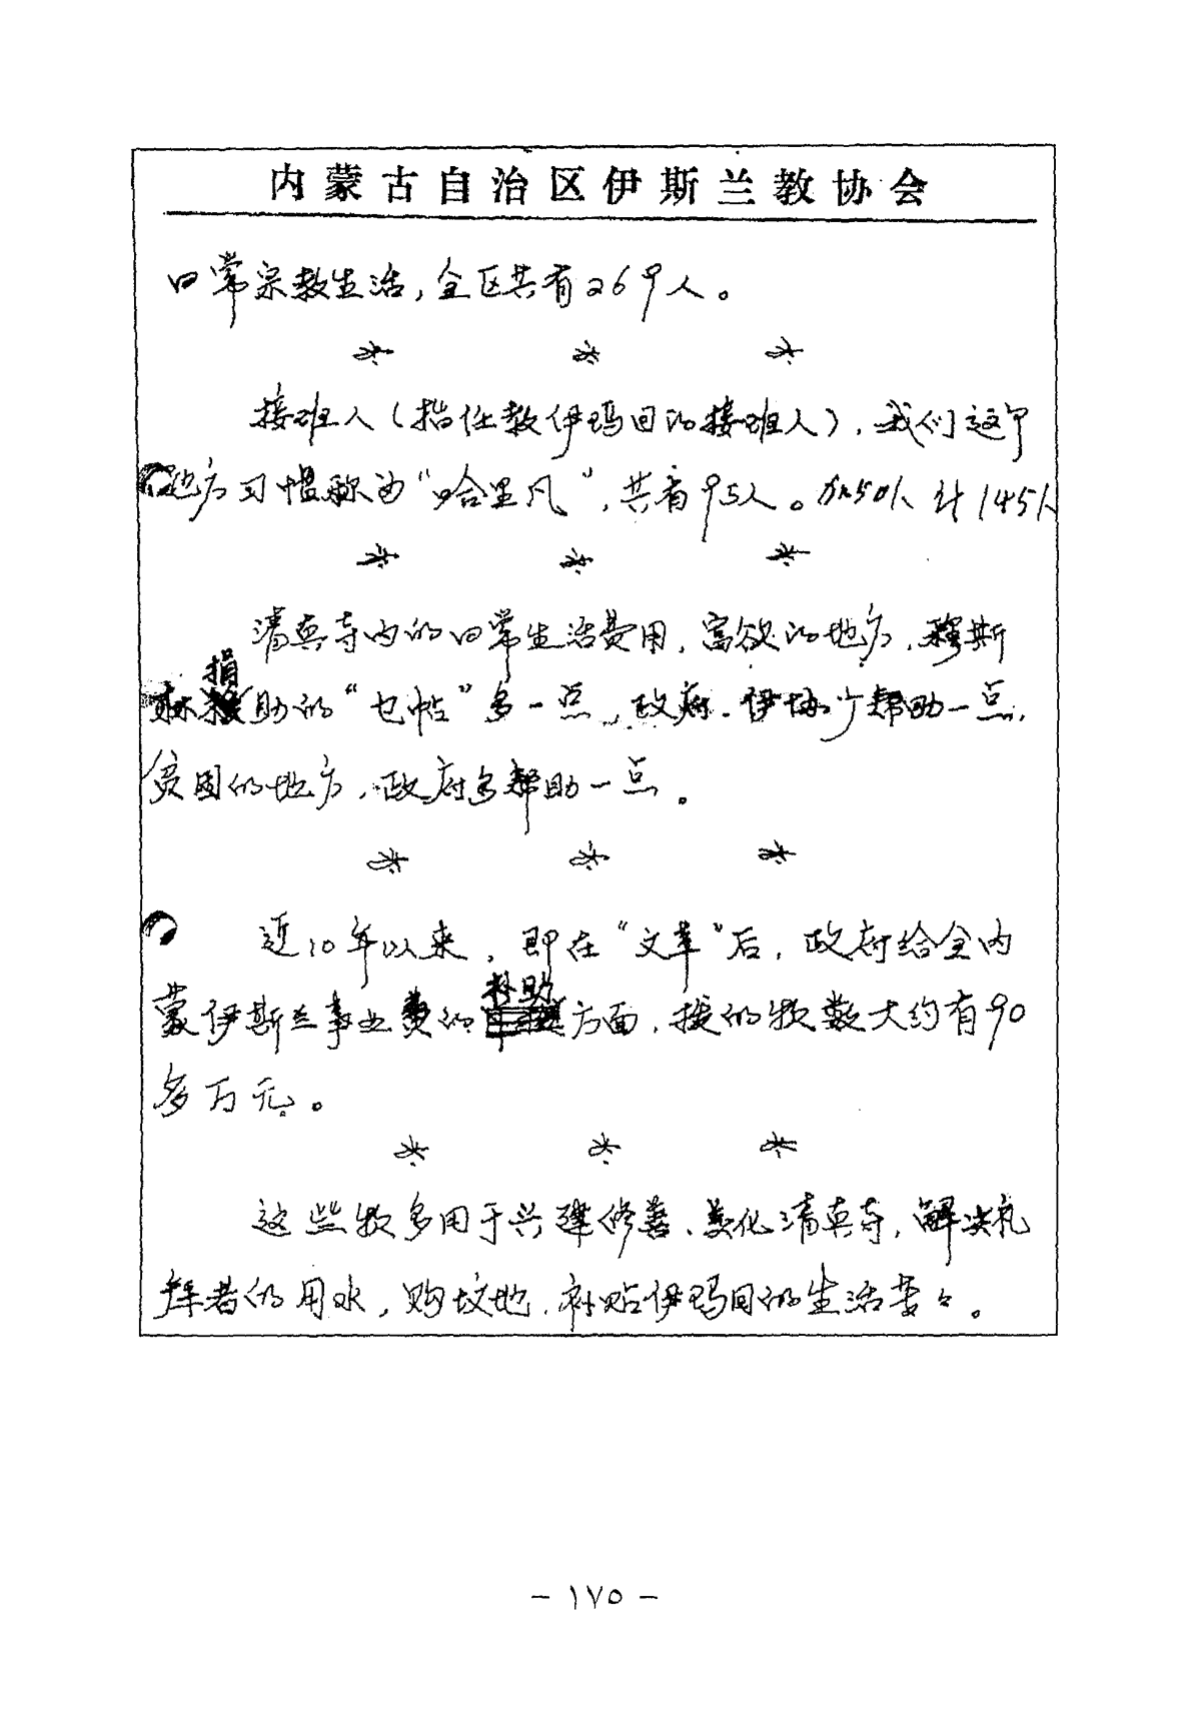 内蒙古自治区伊斯兰教协会
日常宗教生活，全区共有269人。
* * *
接班人（指任教伊玛目的接班人），我们这个
地方习惯称为“哈里凡”，共有95人。加50人 计145人
* * *
清真寺内的日常生活费用，富欲的地方，穆斯
捐
林助的“乜帖”多一点，政府、伊协少帮助一点，
贫困的地方，政府多帮助一点。
* * *
近10年以来，即在“文革”后，政府给全内
补助
蒙伊斯兰事业费的方面，拨的款数大约有90
多万元。
* * *
这些款多用于兴建修善、美化清真寺，解决礼
拜者的用水，购坟地，补贴伊玛目的生活等々。
- ١٧٥ -